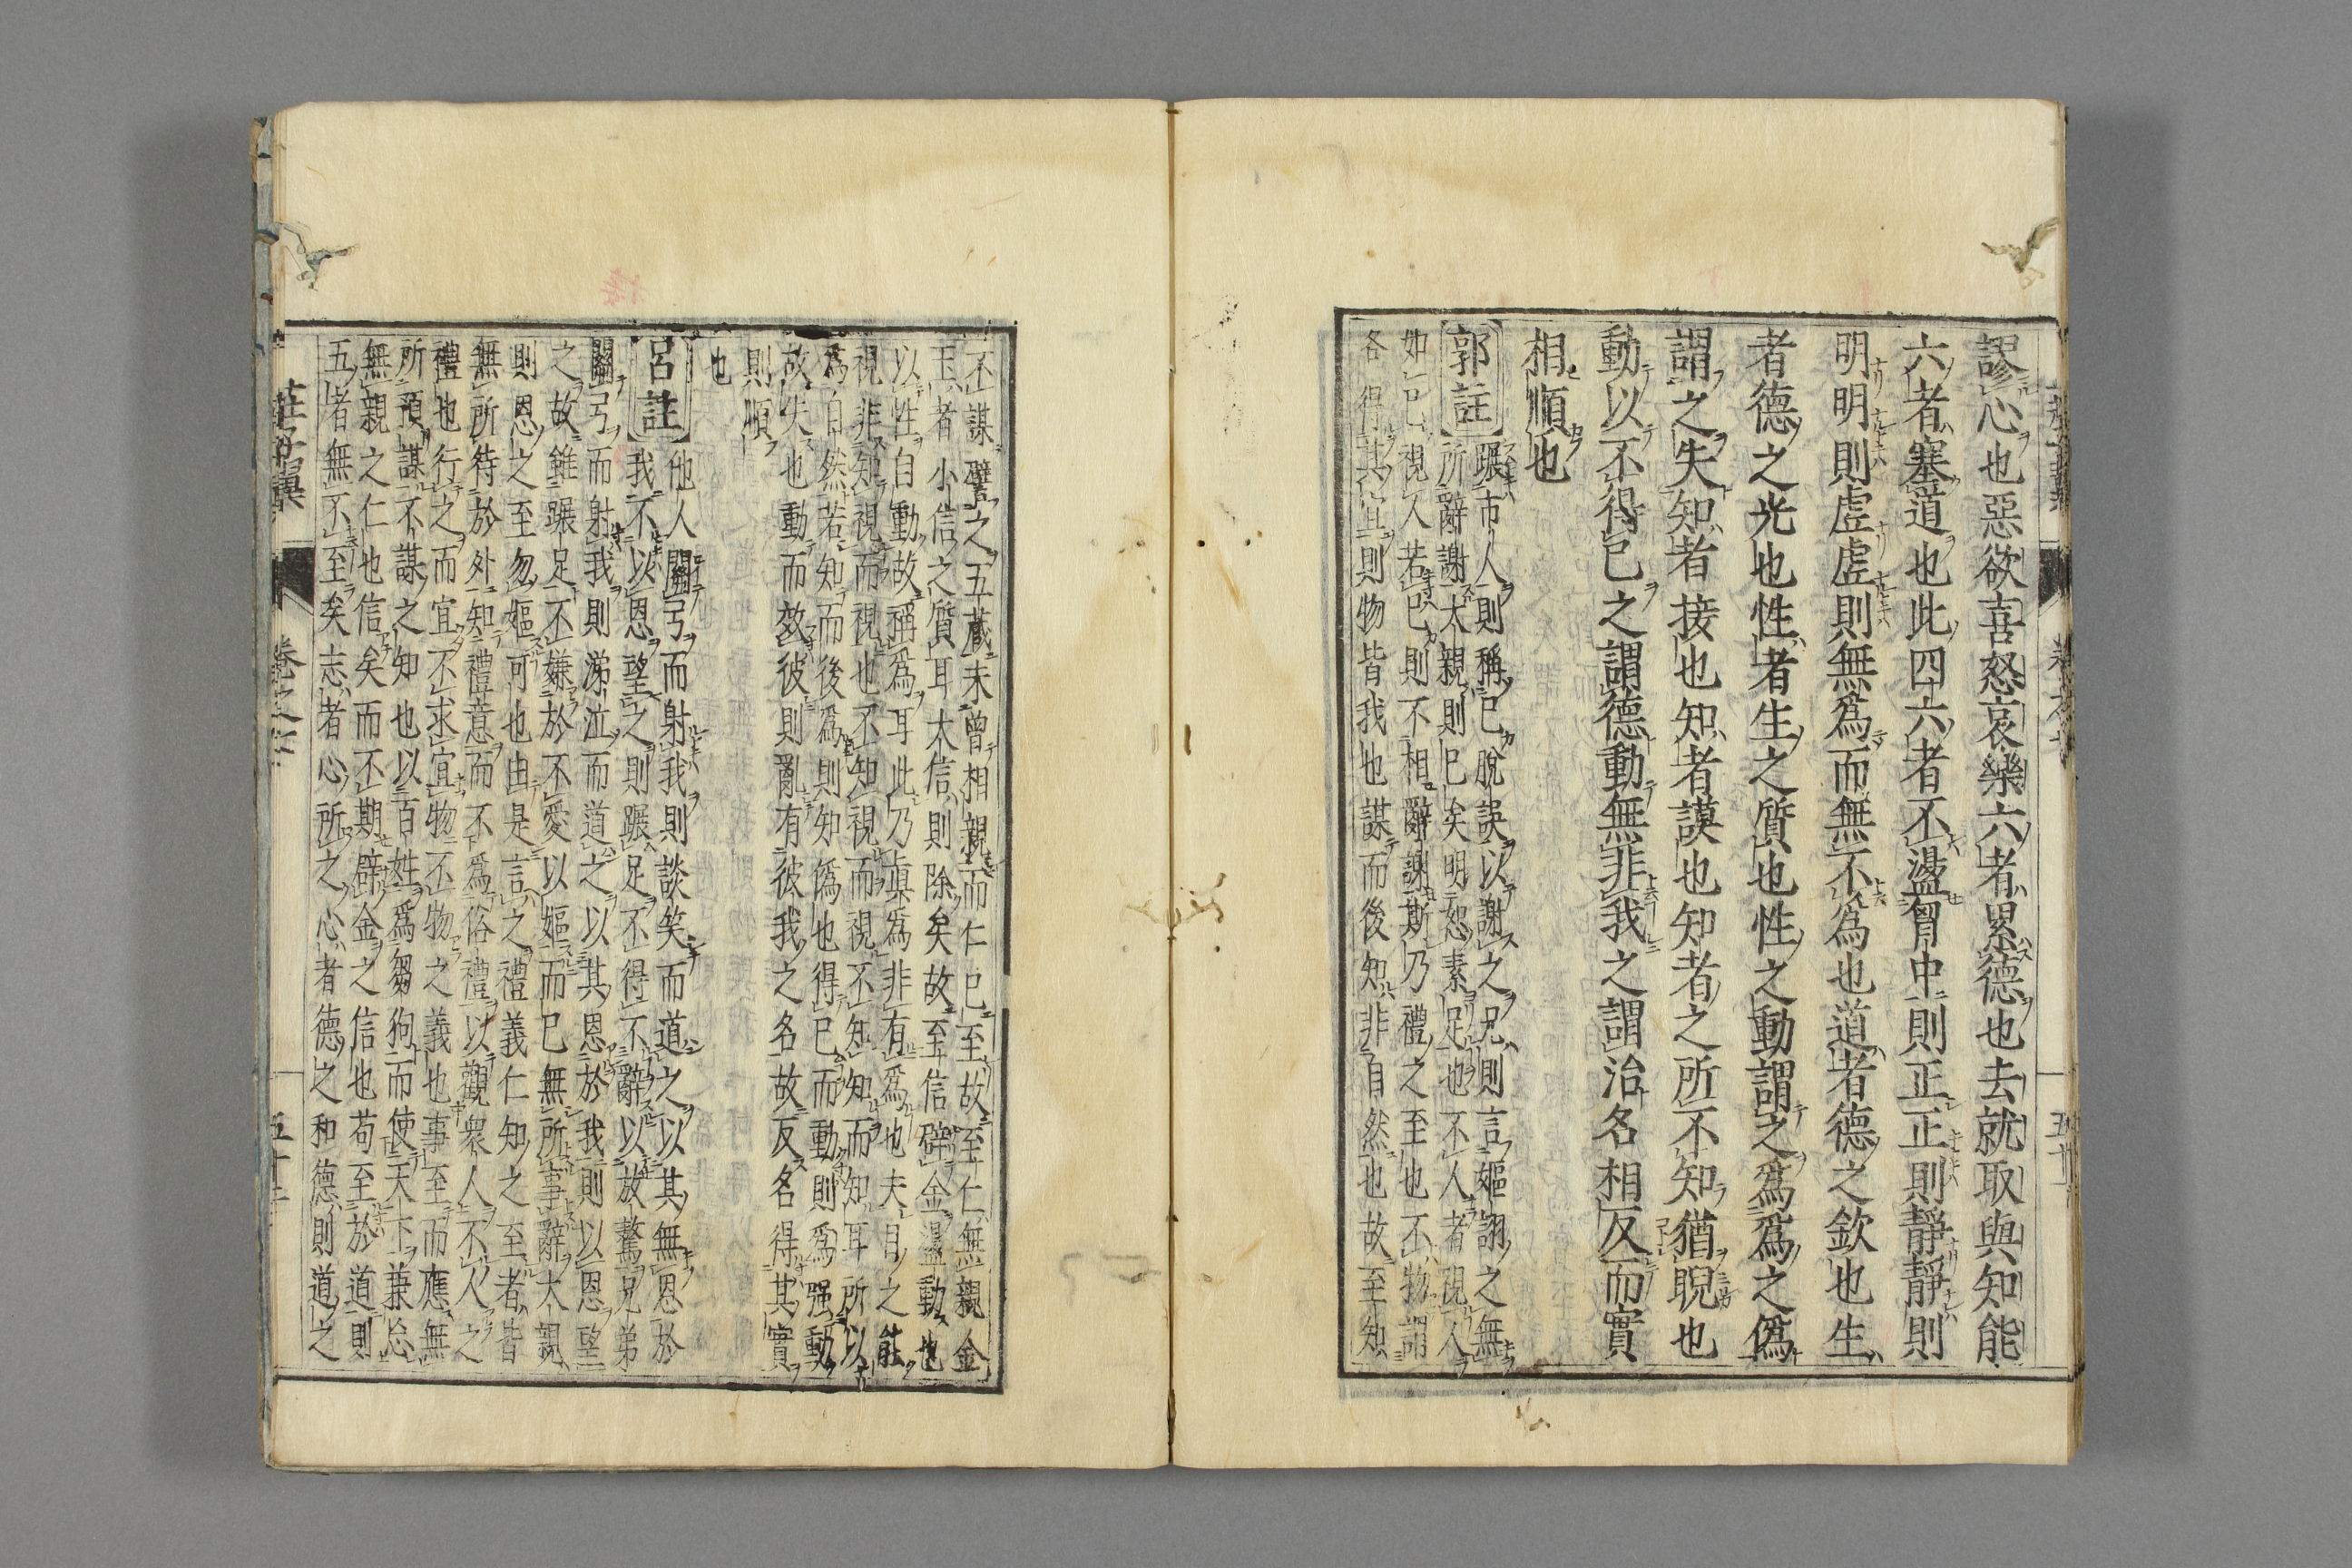 謬心也惡欲喜怒哀樂六者累德也去就取與知能
六者塞道也此四六者不盪胷中則正正則靜靜則
明明則虛虛則無為而無不為也道者德之欽也生
者德之光也性者生之質也性之動謂之爲爲之僞
謂之失知者接也知者謨也知者之所不知猶睨也
動以不得已之謂德動無非我之謂治名相反而實
相順也
郭註
蹍市人則稱已脫誤以謝之兄則言嫗詡之無
所辭謝大親則已矣明恕素足也不人者視人
如己視人若已則不相辭謝斯乃禮之至也不物謂
各得其宜則物皆我也謀而後知非自然也故至知
不謀譬之五藏未曾相親而仁已至故至仁無親金
玉者小信之質耳大信則除矣故至信辟金盪動也
以性自動故稱爲耳此乃眞爲非有爲也夫目之能
視非知視而視也不知視而視不知知而知耳所以
爲自然若知而後爲則知僞也得已而動則爲强動
故失也動而效彼則亂有彼我之名故反名得其實
則順
也
呂註
他人關弓而射我則談笑而道之以其無恩於
我不以恩望之則蹍足不得不辭以放驁兄弟
關弓而射我則涕泣而道之以其恩於我則以恩望
之故雖蹍足不嫌於不愛以嫗而已無所事辭大親
則恩之至忽嫗可也由是言之禮義仁知之至者皆
無所待於外知禮意而不爲俗禮以觀衆人不人之
禮也行之而宜不求宜物不物之義也事至而應無
所預謀不謀之知也以百姓爲芻狗而使天下兼忘
無親之仁也信矣而不期辟金之信也苟至於道則
五者無不至矣志者心所之心者德之和德則道之
莊子翼
卷之六
五十二